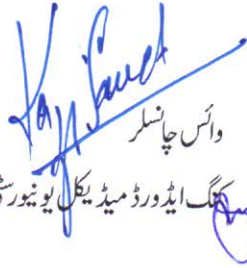 وائس چانسلر
کنگ ایڈورڈ میڈیکل یونیورسٹی